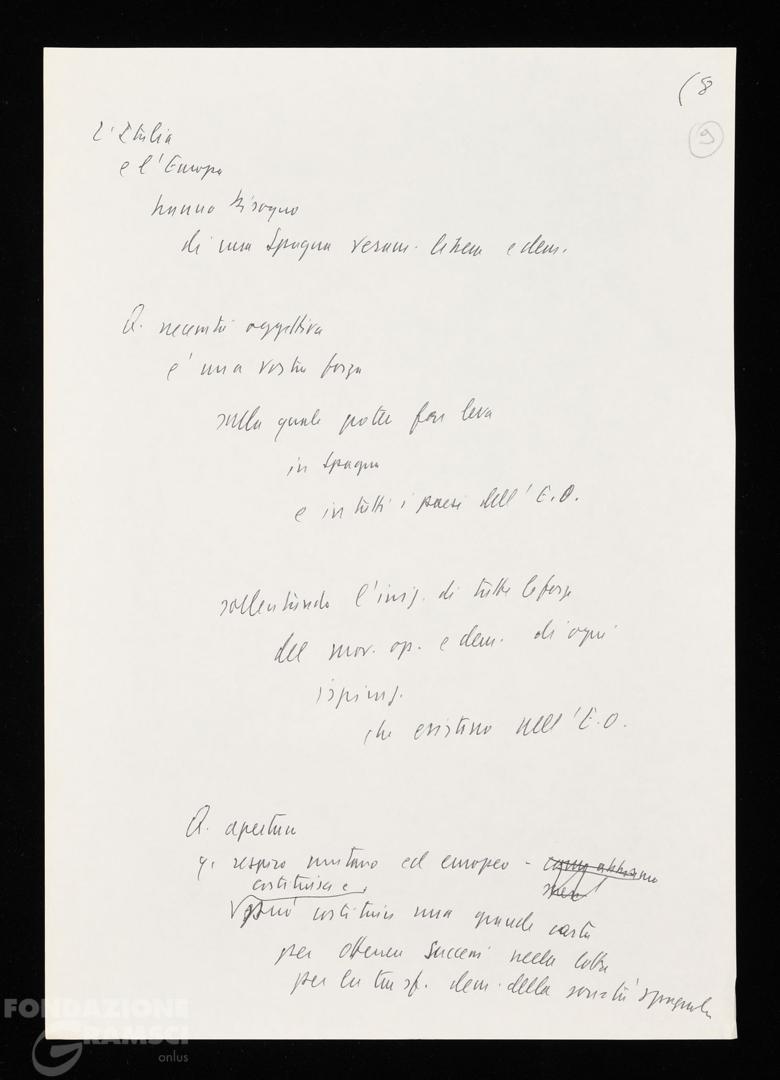 (8
9
L'Italia
e l'Europa
hanno bisogno
di una Spagna veram. libera e dem.
Q. necessità oggettiva
e' una vostra forza
sulla quale potete far leva
in Spagna
e in tutti i paesi dell'E.O.
sollecitando l'iniz. di tutte le forze
del mov. op. e dem. di ogni
ispiraz.
che esistono nell'E.O.
Q. apertura
q. respiro unitario ed europeo - come abbiamo
costituisce e
può costituire una grande carta
per ottenere successi nella lotta
per la trasf. dem. della società spagnola
FONDAZIONE
GRAMSCI
onlus